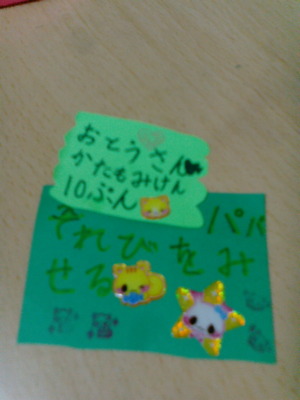 おとうさん
かたもみけん
10ぷん
パパ
それびをみ
せる